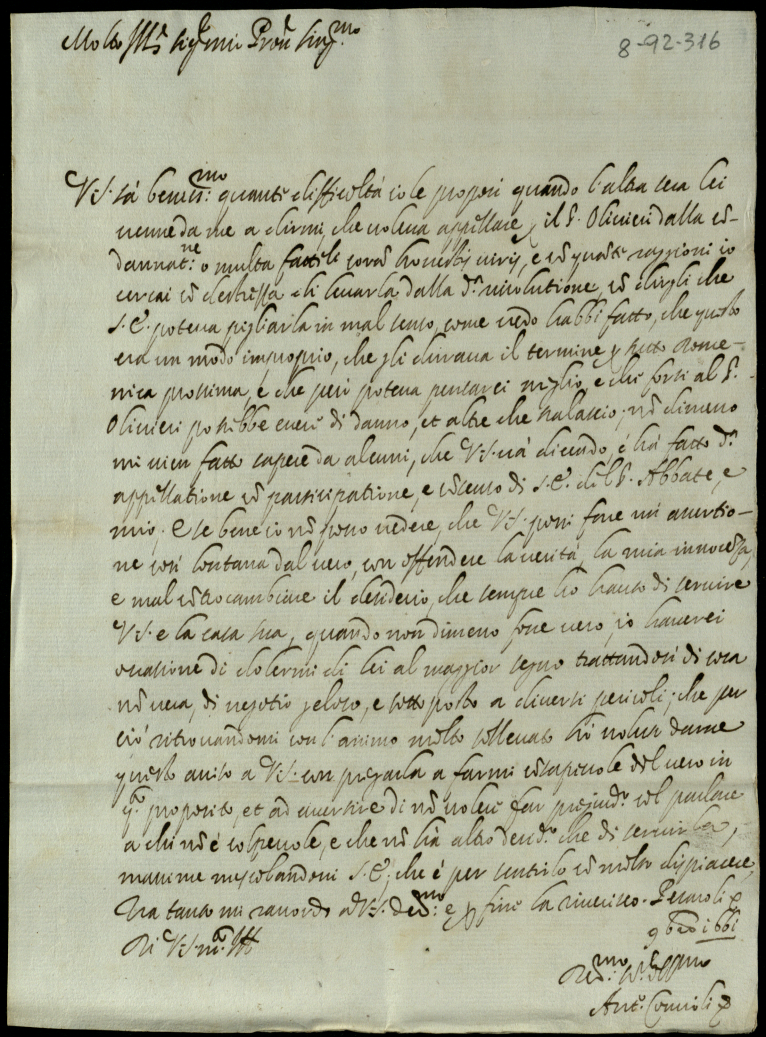 Molto Ill.re Sig.r mio Pron Sing.mo
8-92-316
V.S. sà beniss.mo quante difficoltà io le proposi quando l'altra sera lei
venne da me a dirmi, che voleva appellare p il S. Olivieri dalla cō-
dannat.ne o multa fattele coram honestis viris, e cō queste raggioni io
cercai cō destrezza di levarla dalla d.a risolutione, cō dirgli che
S.E. poteva pigliarla in mal senso, come vedo habbi fatto, che questo
era un modo improprio, che gli durava il termine p tutto Dome-
nica prossima, e che però poteva pensarci meglio, e che forsi al S.
Olivieri potrebbe essere di danno, et altre che tralascio; nō dimeno
mi vien fatto sapere da alcuni, che V.S. và dicendo, c'hà fatto d.a
appellatione cō participatione, e cōsenso di S.E. del S. Abbate, e
mio. E se bene io nō posso vedere, che V.S. possi fare un' assertio-
ne così lontana dal vero, con offendere la verità, la mia innocēza,
e mal cōtrocambiare il desiderio, che sempre hò hauto di servire
V.S. e la casa sua, quando nondimeno fosse vero, io haverei
occasione di dolermi di lei al maggior segno trattandosi di cosa
nō vera, di negotio geloso, e sottoposto a diversi pericoli; che per
ciò ritrovandomi con l'animo molto sollevato hò voluto darne
questo aviso a V.S. con pregarla a farmi cōsapevole del vero in
q.o proposito, et ad avertire di nō voler far pregiud.o col parlare
a chi nō è colpevole, e che nō hà altro desid.o che di servirla,
massime mescolandosi S.E., che è per sentirlo cō molto dispiacere,
Tra tanto mi raccordo a V.S. dev.mo e p fine la riverisco. Pesaro li
9 bre 1661
Di V.S. m.o Ill.
Ant.o